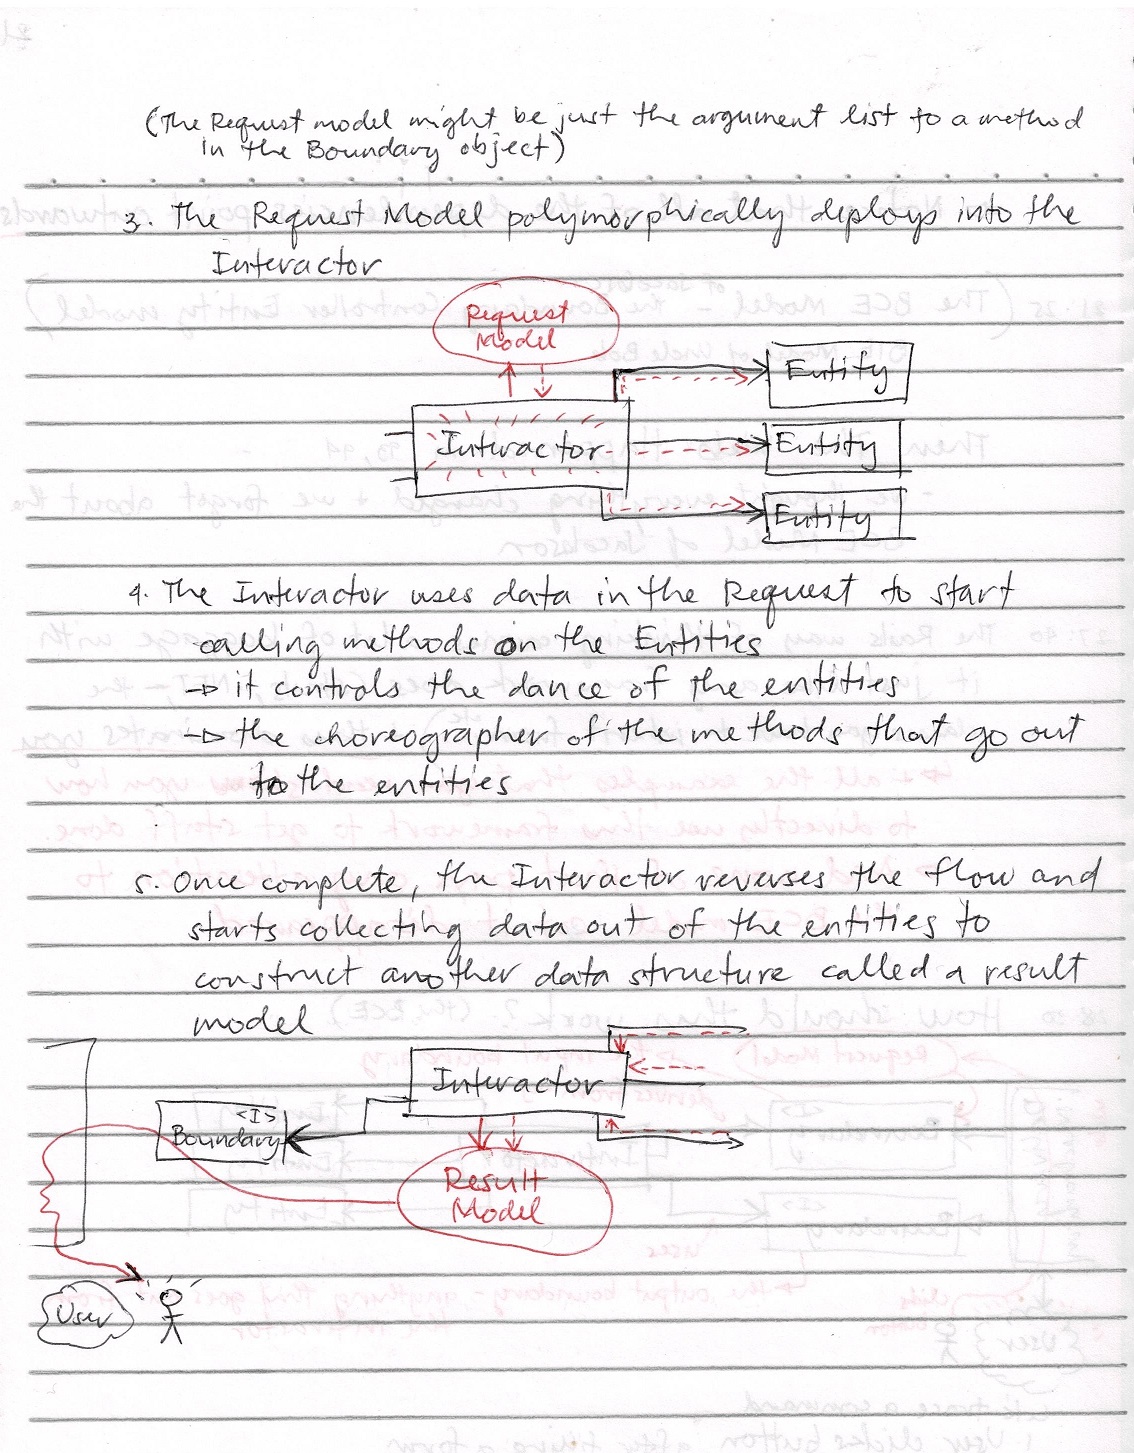 (The Request model might be just the argument list to a method
in the Boundary object)
3. The Request Model polymorphically deploys into the
Interactor
Request
Model
Entity
Interactor
Entity
Entity
4. The Interactor uses data in the Request to start
calling methods on the Entities
→ it controls the dance of the entities
→ the choreographer of the methods that go out
to the entities
5. Once complete, the Interactor reverses the flow and
starts collecting data out of the entities to
construct another data structure called a result
model
Interactor
<I>
Boundary
Result
Model
User